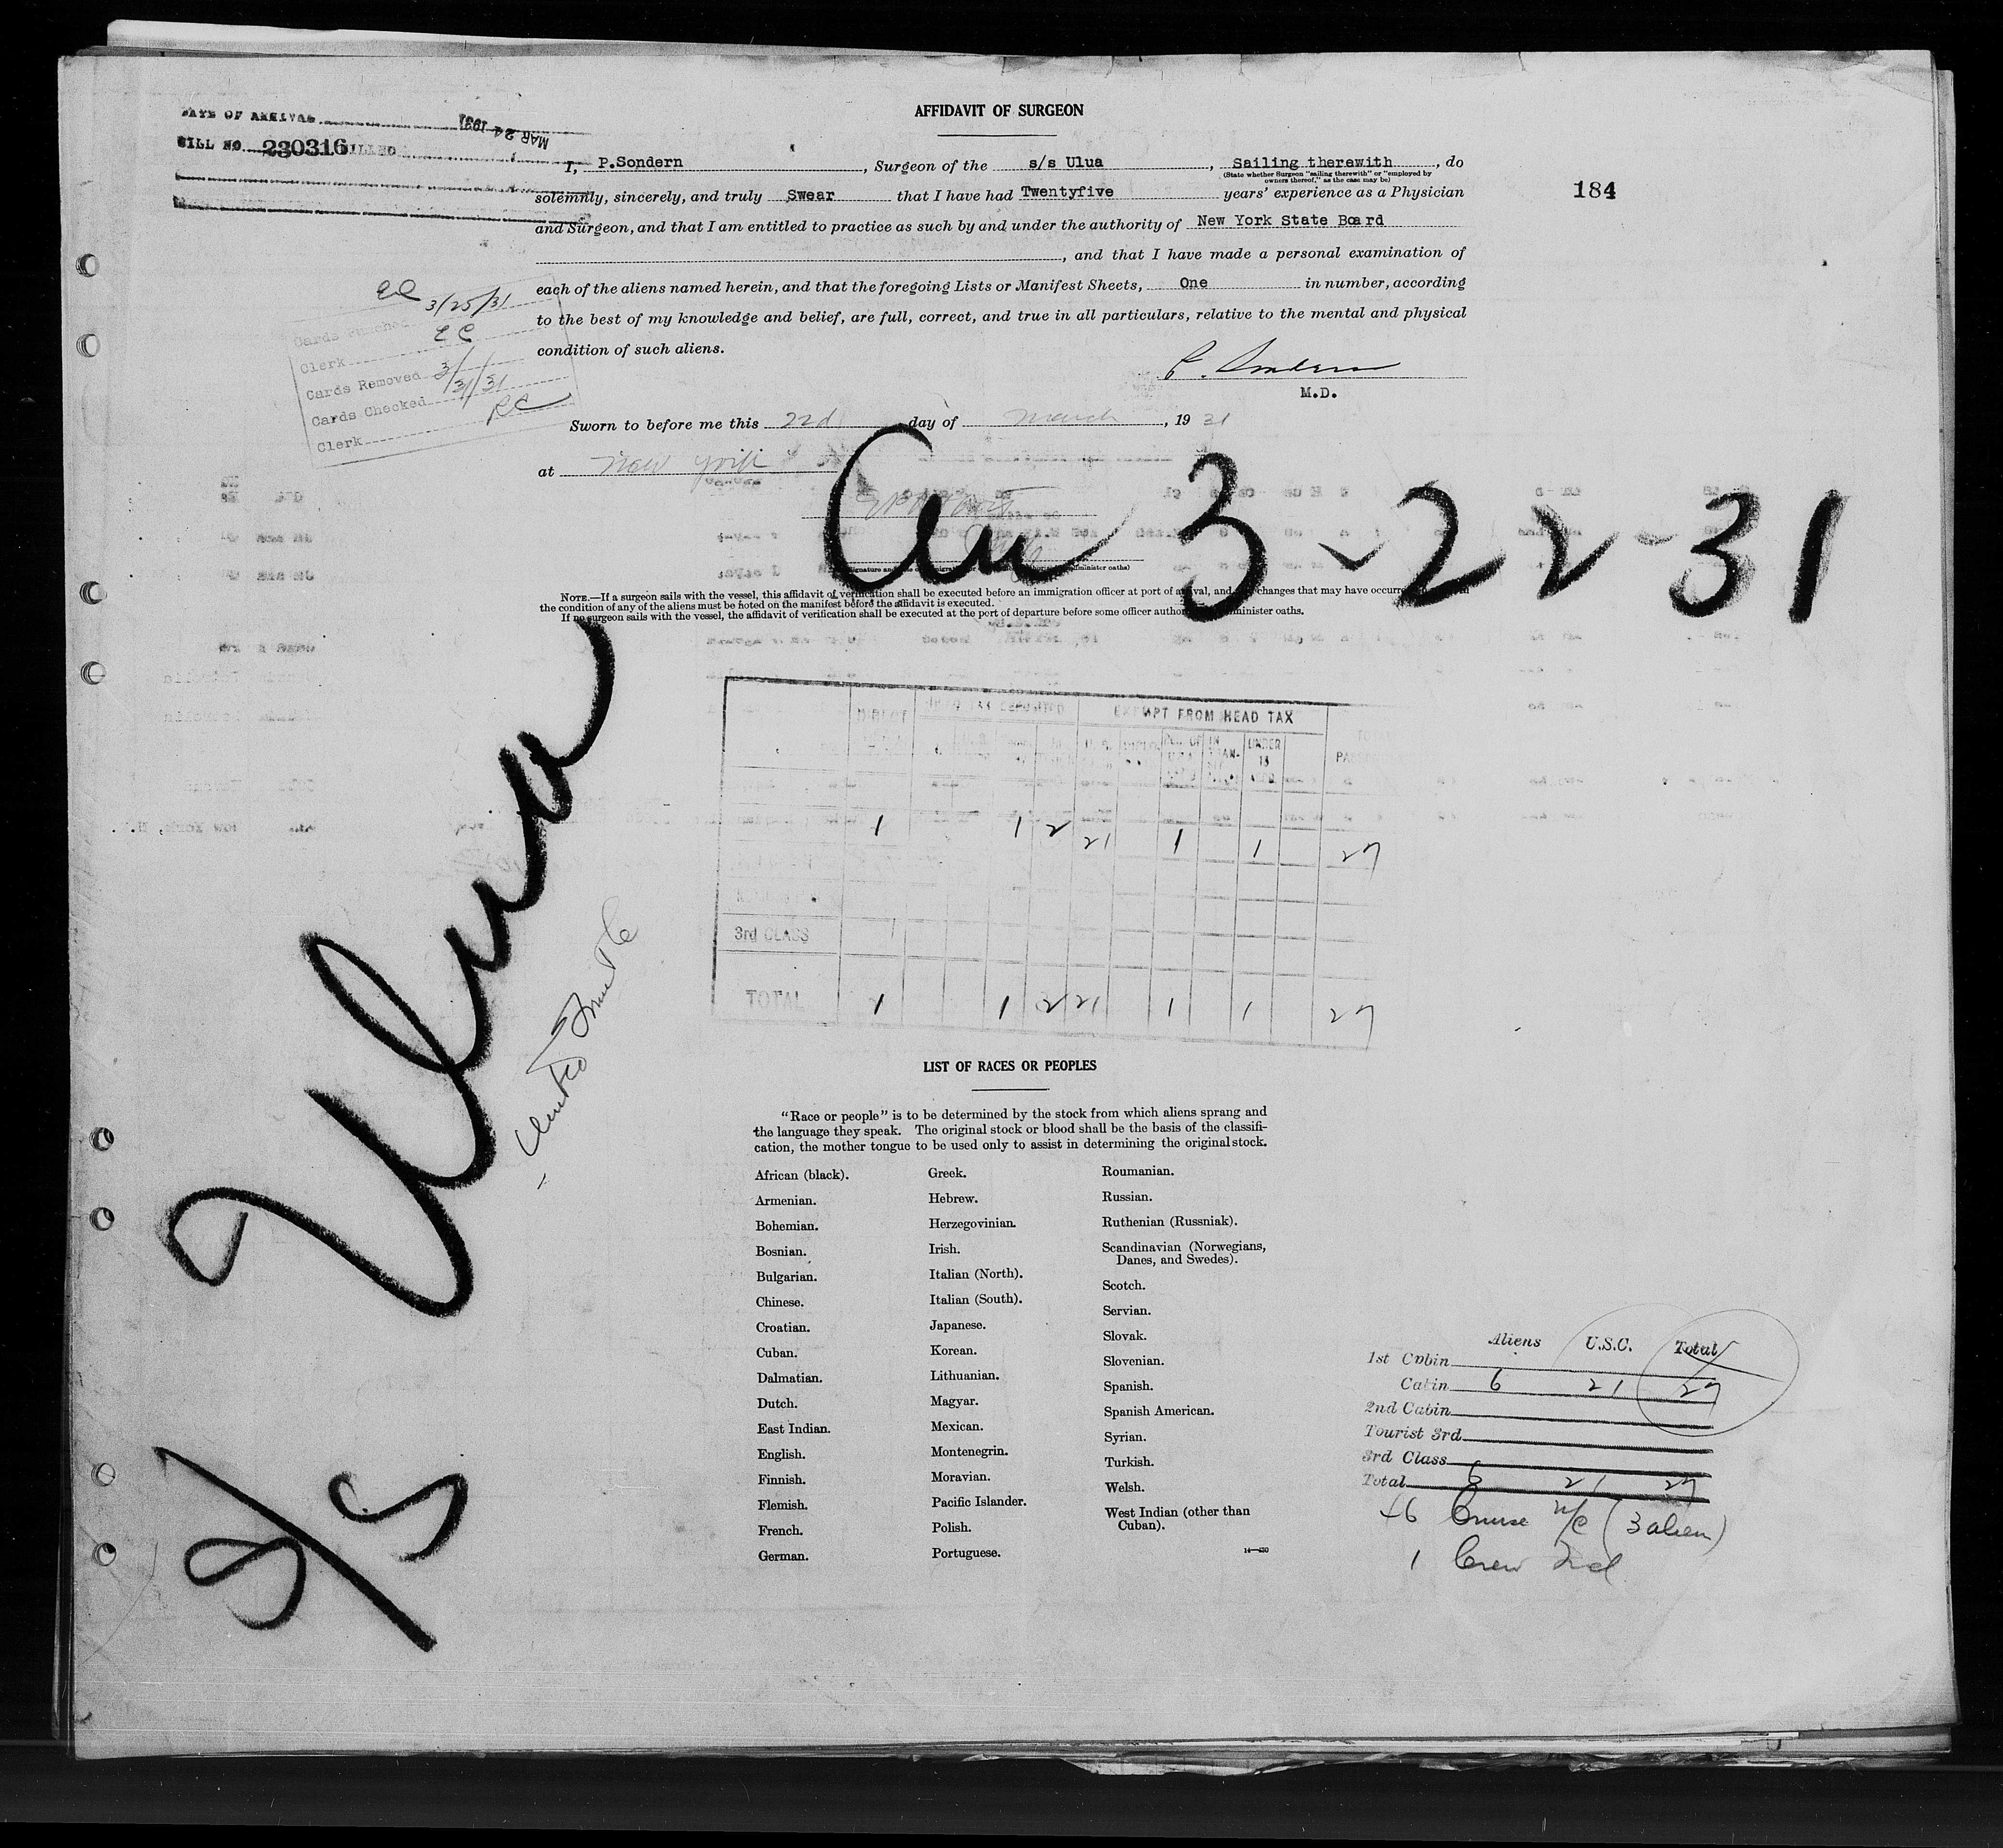 AFFIDAVIT OF SURGEON
DATE OF ARRIVAL MAR 24 1931
BILL NO. 230316 BILLED
184
I, P.Sondern, Surgeon of the s/s Ulua, Sailing therewith, do
(State whether Surgeon "sailing therewith" or "employed by
owners thereof," as the case may be)
solemnly, sincerely, and truly Swear that I have had Twentyfive years' experience as a Physician
and Surgeon, and that I am entitled to practice as such by and under the authority of New York State Board
, and that I have made a personal examination of
each of the aliens named herein, and that the foregoing Lists or Manifest Sheets, One in number, according
to the best of my knowledge and belief, are full, correct, and true in all particulars, relative to the mental and physical
condition of such aliens.
P. Sondern
M.D.
3/25/31
Cards Punched
Clerk EC
Cards Removed 3/31/31
Cards Checked
Clerk RC
Sworn to before me this 22d day of March, 1931
at New York
Arr 3-22-31
NOTE.—If a surgeon sails with the vessel, this affidavit of verification shall be executed before an immigration officer at port of arrival, and changes that may have occurred
the condition of any of the aliens must be noted on the manifest before the affidavit is executed.
If no surgeon sails with the vessel, the affidavit of verification shall be executed at the port of departure before some officer authorized administer oaths.
S/S Ulua
DIRECT HEAD TAX DEPOSITED EXEMPT FROM HEAD TAX TOTAL
UNDER 16
1 1 2 21 1 1 27
3rd CLASS
TOTAL 1 1 2 21 1 1 27
LIST OF RACES OR PEOPLES
"Race or people" is to be determined by the stock from which aliens sprang and
the language they speak. The original stock or blood shall be the basis of the classifi-
cation, the mother tongue to be used only to assist in determining the original stock.
African (black).
Armenian.
Bohemian.
Bosnian.
Bulgarian.
Chinese.
Croatian.
Cuban.
Dalmatian.
Dutch.
East Indian.
English.
Finnish.
Flemish.
French.
German.
Greek.
Hebrew.
Herzegovinian.
Irish.
Italian (North).
Italian (South).
Japanese.
Korean.
Lithuanian.
Magyar.
Mexican.
Montenegrin.
Moravian.
Pacific Islander.
Polish.
Portuguese.
Roumanian.
Russian.
Ruthenian (Russniak).
Scandinavian (Norwegians,
Danes, and Swedes).
Scotch.
Servian.
Slovak.
Slovenian.
Spanish.
Spanish American.
Syrian.
Turkish.
Welsh.
West Indian (other than
Cuban).
14—430
Aliens U.S.C. Total
1st Cabin
Cabin 6 21 27
2nd Cabin
Tourist 3rd
3rd Class
Total 6 21 27
46 Cruise (3 alien)
1 Crew